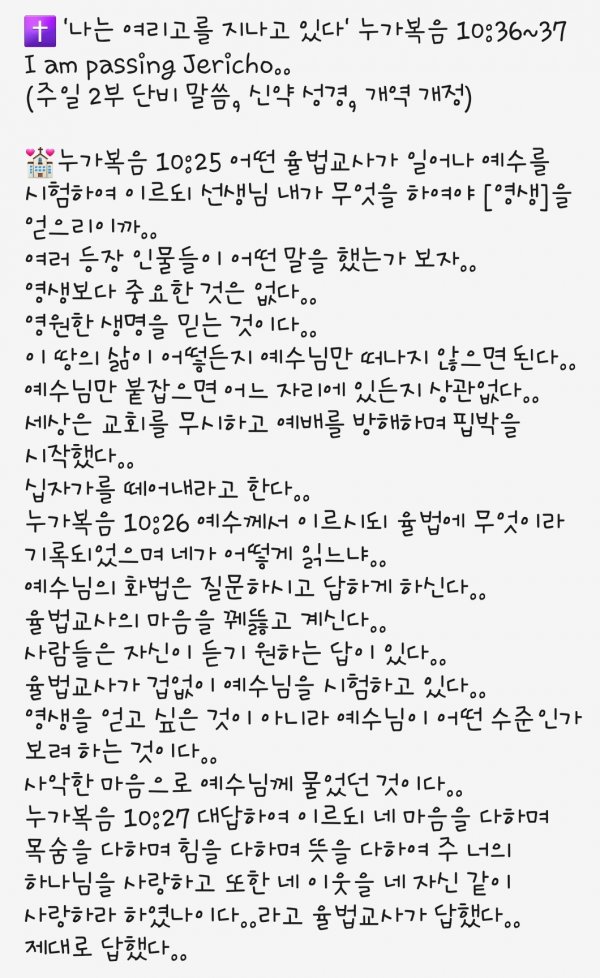 ✝️ '나는 여리고를 지나고 있다' 누가복음 10:36~37
I am passing Jericho..
(주일 2부 단비 말씀, 신약 성경, 개역 개정)
💒누가복음 10:25 어떤 율법교사가 일어나 예수를
시험하여 이르되 선생님 내가 무엇을 하여야 [영생]을
얻으리이까..
여러 등장 인물들이 어떤 말을 했는가 보자..
영생보다 중요한 것은 없다..
영원한 생명을 믿는 것이다..
이 땅의 삶이 어떻든지 예수님만 떠나지 않으면 된다..
예수님만 붙잡으면 어느 자리에 있든지 상관없다..
세상은 교회를 무시하고 예배를 방해하며 핍박을
시작했다..
십자가를 떼어내라고 한다..
누가복음 10:26 예수께서 이르시되 율법에 무엇이라
기록되었으며 네가 어떻게 읽느냐..
예수님의 화법은 질문하시고 답하게 하신다..
율법교사의 마음을 꿰뚫고 계신다..
사람들은 자신이 듣기 원하는 답이 있다..
율법교사가 겁없이 예수님을 시험하고 있다..
영생을 얻고 싶은 것이 아니라 예수님이 어떤 수준인가
보려 하는 것이다..
사악한 마음으로 예수님께 물었던 것이다..
누가복음 10:27 대답하여 이르되 네 마음을 다하며
목숨을 다하며 힘을 다하며 뜻을 다하여 주 너의
하나님을 사랑하고 또한 네 이웃을 네 자신 같이
사랑하라 하였나이다..라고 율법교사가 답했다..
제대로 답했다..